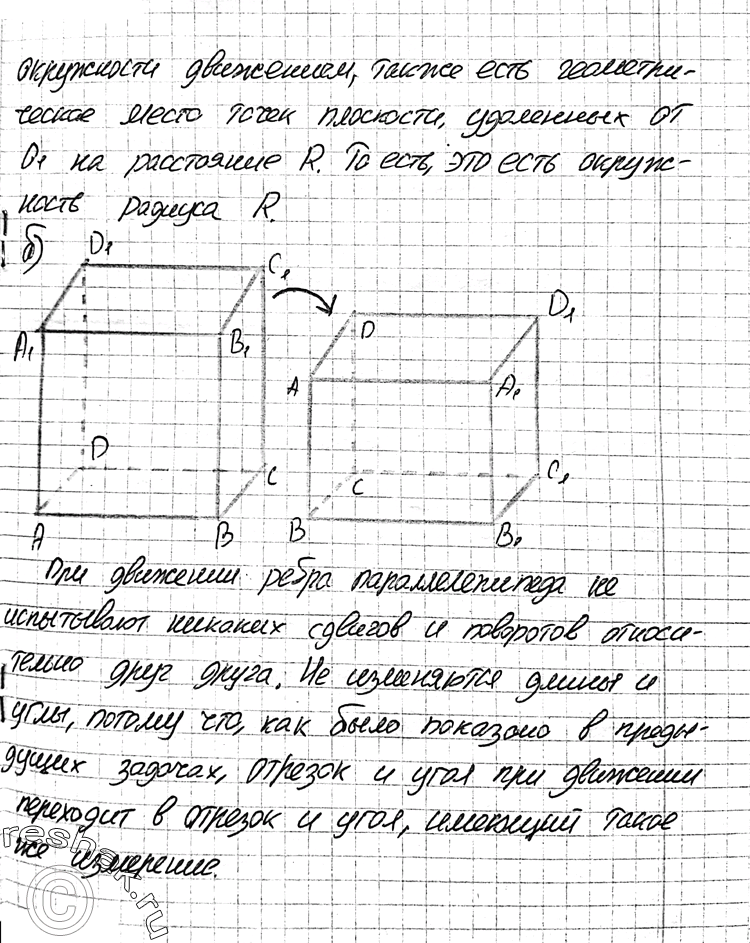 окружности движением, также есть геометри-
ческое место точек плоскости, удаленных от
O₁ на расстояние R. То есть, это есть окруж-
ность радиуса R.
б)
D₁
C₁
A₁
B₁
D
C
A
B
D
D₁
A
A₁
C
C₁
B
B₁
При движении ребра параллелепипеда не
испытывают никаких сдвигов и поворотов относи-
тельно друг друга. Не изменяются длины и
углы, потому что, как было показано в преды-
дущих задачах, отрезок и угол при движении
переходит в отрезок и угол, имеющий такое
же измерение.
reshak.ru
©